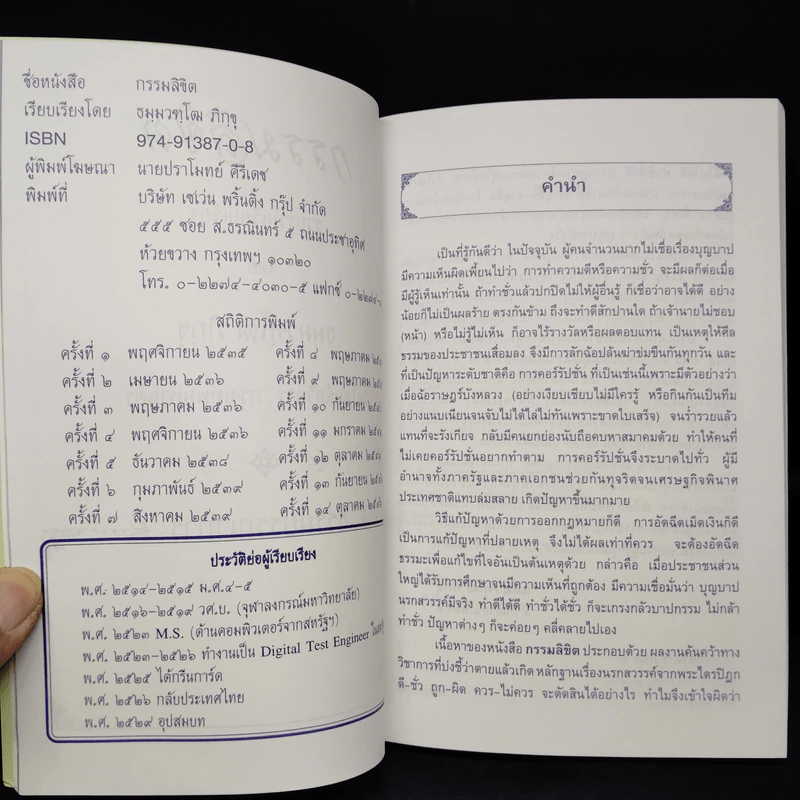 ชื่อหนังสือ กรรมลิขิต
เรียบเรียงโดย ธมฺมวฑฺโฒ ภิกขุ
ISBN 974-91387-0-8
ผู้พิมพ์โฆษณา นายปราโมทย์ คีรีเดช
พิมพ์ที่ บริษัท เซเว่น พริ้นติ้ง กรุ๊ป จำกัด
๕๕๕ ซอย ส.ธรณินทร์ ๕ ถนนประชาอุทิศ
ห้วยขวาง กรุงเทพฯ ๑๐๓๒๐
โทร. ๐-๒๒๗๔-๔๐๓๐-๕ แฟกซ์ ๐-๒๒๗๔-
สถิติการพิมพ์
ครั้งที่ ๑ พฤศจิกายน ๒๕๓๕ ครั้งที่ ๘ พฤษภาคม
ครั้งที่ ๒ เมษายน ๒๕๓๖ ครั้งที่ ๙ พฤษภาคม
ครั้งที่ ๓ พฤษภาคม ๒๕๓๖ ครั้งที่ ๑๐ กันยายน
ครั้งที่ ๔ พฤศจิกายน ๒๕๓๖ ครั้งที่ ๑๑ มกราคม
ครั้งที่ ๕ ธันวาคม ๒๕๓๘ ครั้งที่ ๑๒ ตุลาคม
ครั้งที่ ๖ กุมภาพันธ์ ๒๕๓๙ ครั้งที่ ๑๓ กันยายน
ครั้งที่ ๗ สิงหาคม ๒๕๓๙ ครั้งที่ ๑๔ ตุลาคม
ประวัติย่อผู้เรียบเรียง
พ.ศ. ๒๕๑๔-๒๕๑๕ ม.ศ.๔-๕
พ.ศ. ๒๕๑๖-๒๕๑๙ วศ.บ. (จุฬาลงกรณ์มหาวิทยาลัย)
พ.ศ. ๒๕๒๓ M.S. (ด้านคอมพิวเตอร์จากสหรัฐฯ)
พ.ศ. ๒๕๒๓-๒๕๒๖ ทำงานเป็น Digital Test Engineer
พ.ศ. ๒๕๒๕ ได้กรีนการ์ด
พ.ศ. ๒๕๒๖ กลับประเทศไทย
พ.ศ. ๒๕๒๙ อุปสมบท
คำนำ
เป็นที่รู้กันดีว่า ในปัจจุบัน ผู้คนจำนวนมากไม่เชื่อเรื่องบุญบาป
มีความเห็นผิดเพี้ยนไปว่า การทำความดีหรือความชั่ว จะมีผลก็ต่อเมื่อ
มีผู้รู้เห็นเท่านั้น ถ้าทำชั่วแล้วปกปิดไม่ให้ผู้อื่นรู้ ก็เชื่อว่าอาจได้ดี อย่าง
น้อยก็ไม่เป็นผลร้าย ตรงกันข้าม ถึงจะทำดีสักปานใด ถ้าเจ้านายไม่ชอบ
(หน้า) หรือไม่รู้ไม่เห็น ก็อาจไร้รางวัลหรือผลตอบแทน เป็นเหตุให้ศีล
ธรรมของประชาชนเสื่อมลง จึงมีการลักฉ้อปล้นฆ่าข่มขืนกันทุกวัน และ
ที่เป็นปัญหาระดับชาติคือ การคอร์รัปชั่น ที่เป็นเช่นนี้เพราะมีตัวอย่างว่า
เมื่อฉ้อราษฎร์บังหลวง (อย่างเงียบเชียบไม่มีใครรู้ หรือกินกันเป็นทีม
อย่างแนบเนียนจนจับไม่ได้ไล่ไม่ทันเพราะขาดใบเสร็จ) จนร่ำรวยแล้ว
แทนที่จะรังเกียจ กลับมีคนยกย่องนับถือคบหาสมาคมด้วย ทำให้คนที่
ไม่เคยคอร์รัปชั่นอยากทำตาม การคอร์รัปชั่นจึงระบาดไปทั่ว ผู้มี
อำนาจทั้งภาครัฐและภาคเอกชนช่วยกันทุจริตจนเศรษฐกิจพินาศ
ประเทศชาติแทบล่มสลาย เกิดปัญหาขึ้นมากมาย
วิธีแก้ปัญหาด้วยการออกกฎหมายก็ดี การอัดฉีดเม็ดเงินก็ดี
เป็นการแก้ปัญหาที่ปลายเหตุ จึงไม่ได้ผลเท่าที่ควร จะต้องอัดฉีด
ธรรมะเพื่อแก้ไขที่ใจอันเป็นต้นเหตุด้วย กล่าวคือ เมื่อประชาชนส่วน
ใหญ่ได้รับการศึกษาจนมีความเห็นที่ถูกต้อง มีความเชื่อมั่นว่า บุญบาป
นรกสวรรค์มีจริง ทำดีได้ดี ทำชั่วได้ชั่ว ก็จะเกรงกลัวบาปกรรม ไม่กล้า
ทำชั่ว ปัญหาต่างๆ ก็จะค่อยๆ คลี่คลายไปเอง
เนื้อหาของหนังสือ กรรมลิขิต ประกอบด้วย ผลงานค้นคว้าทาง
วิชาการที่บ่งชี้ว่าตายแล้วเกิด หลักฐานเรื่องนรกสวรรค์จากพระไตรปิฎก
ดี-ชั่ว ถูก-ผิด ควร-ไม่ควร จะตัดสินได้อย่างไร ทำไมจึงเข้าใจผิดว่า